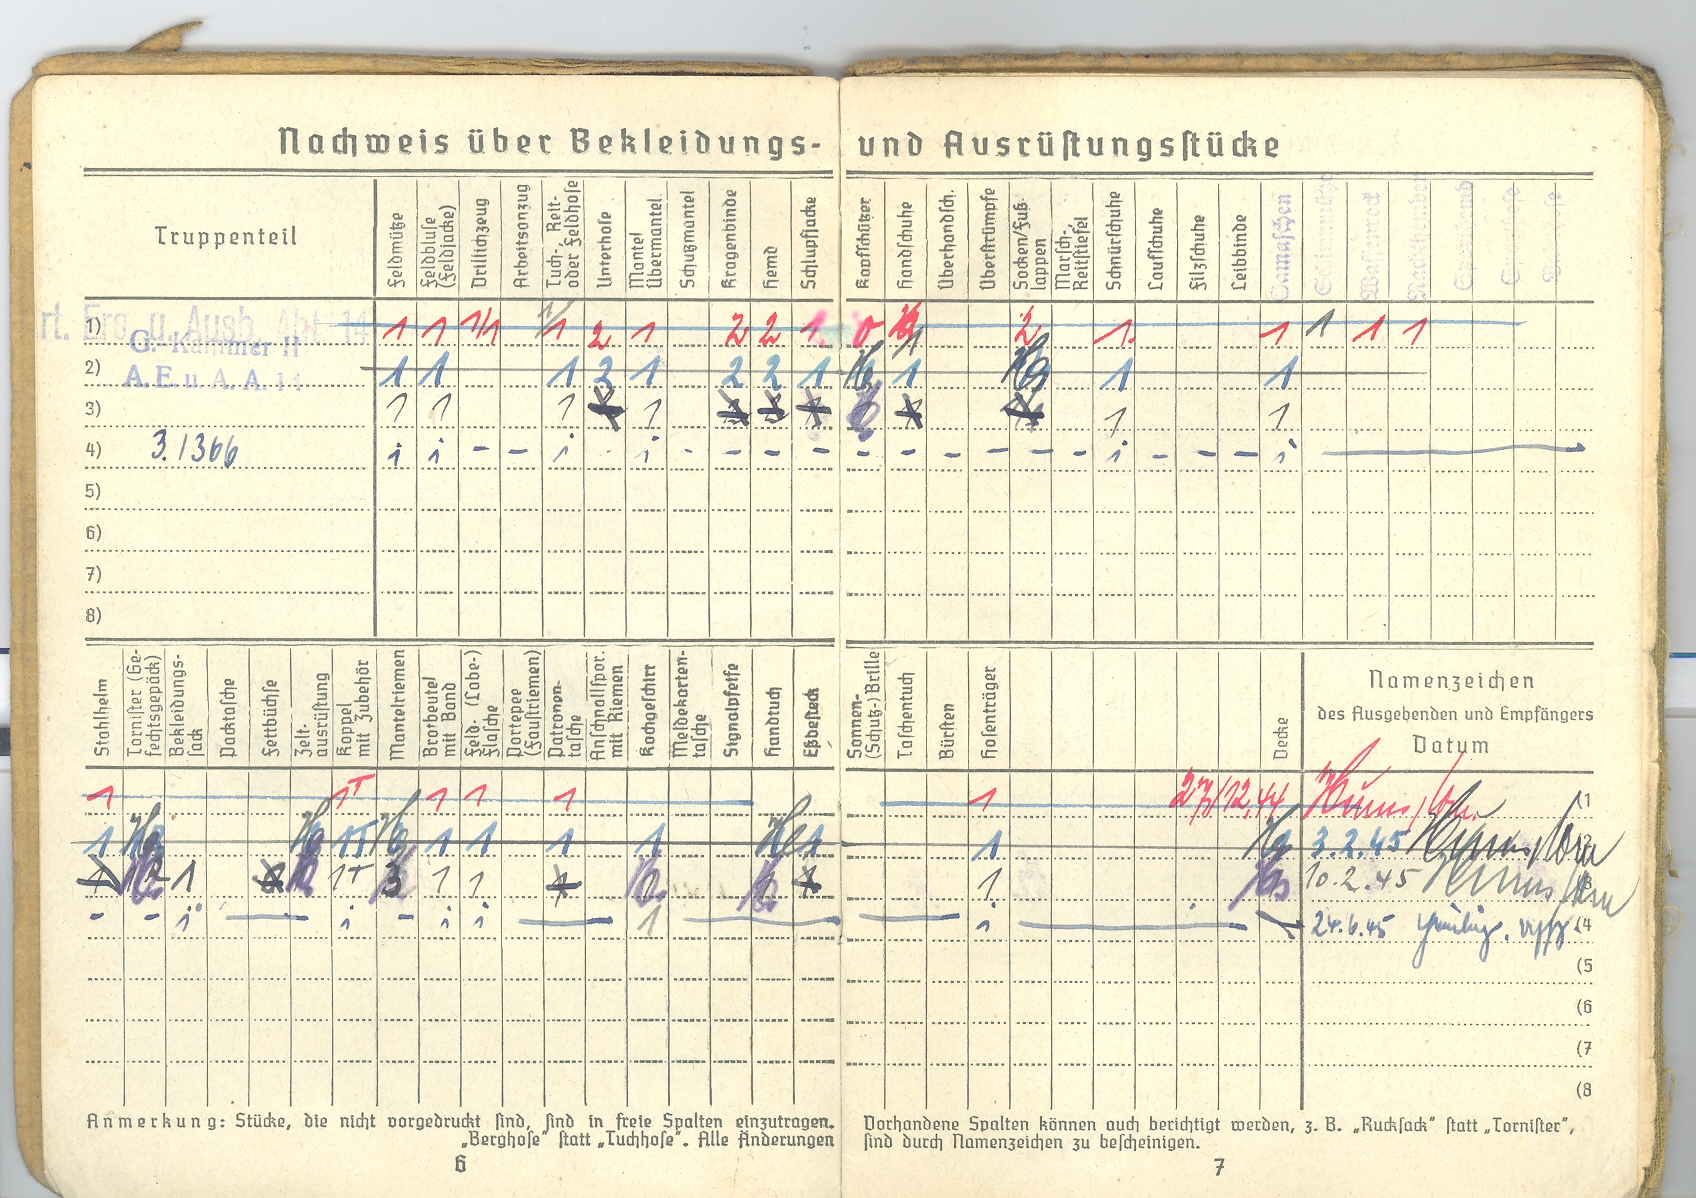 Nachweis über Bekleidungs- und Ausrüstungsstücke
Truppenteil
Feldmütze
Feldbluse (Feldjacke)
Drillichzeug
Arbeitsanzug
Tuch-, Reit- oder Feldhose
Unterhose
Mantel Übermantel
Schutzmantel
Kragenbinde
Hemd
Schlupfjacke
Kopfschützer
Handschuhe
Überhandsch.
Überstrümpfe
Socken/Fußlappen
Marsch-, Reitstiefel
Schnürschuhe
Laufschuhe
Filzschuhe
Leibbinde
Gamaschen
Schirmmütze
Waffenrock
1) rt. Ers. u. Ausb. Abt. 14
G.-Kammer II
1 1 1/1 1 2 1 2 2 1 0 2 1 1 1 1 1
2) A. E. u. A. A. 14
1 1 1 2 1 2 2 1 1 1 1
3) 1 1 1 1 1 1
4) 3. 1366 i i - - i - i - - - - - - - - - - - i - - - i
5)
6)
7)
8)
Stahlhelm
Tornister (Gefechtsgepäck)
Bekleidungssack
Packtasche
Fettbüchse
Zeltausrüstung
Koppel mit Zubehör
Mantelriemen
Brotbeutel mit Band
Feld- (Labe-) Flasche
Portepee (Faustriemen)
Patronentasche
Anschnallspor. mit Riemen
Kochgeschirr
Meldekartentasche
Signalpfeife
Handtuch
Eßbesteck
Sonnen- (Schutz-) Brille
Taschentuch
Bürsten
Hosenträger
Decke
Namenzeichen
des Ausgebenden und Empfängers
Datum
1 1 1 1 1 1 27/12.44 (1
1 1 1 1 1 1 3.2.45 (2
1 1 1 1 10.2.45 (3
- - i i - i i 1 i 24.6.45 (4
(5
(6
(7
(8
Anmerkung: Stücke, die nicht vorgedruckt sind, sind in freie Spalten einzutragen. Vorhandene Spalten können auch berichtigt werden, z. B. „Rucksack" statt „Tornister",
„Berghose" statt „Tuchhose". Alle Änderungen sind durch Namenzeichen zu bescheinigen.
6
7